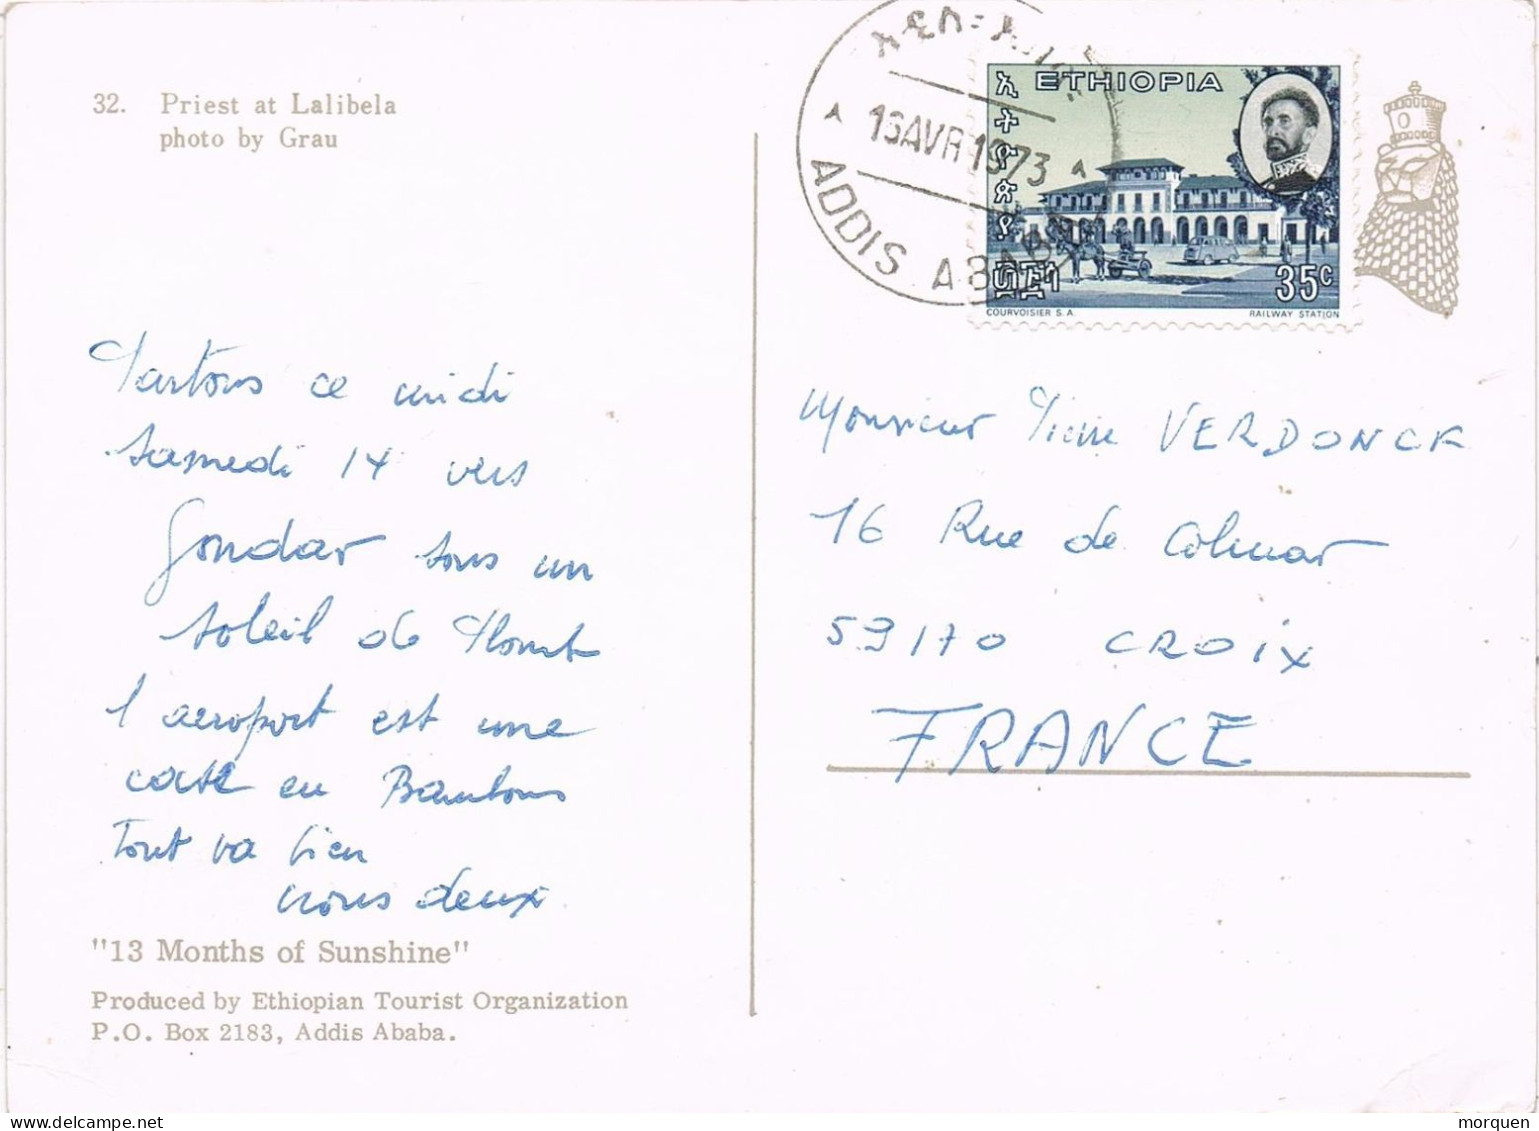 32. Priest at Lalibela
photo by Grau
Partons ce midi
Samedi 14 vers
Gondar sous un
soleil de Plomb
l'aeroport est une
case en Bambous
Tout va bien
nous deux
"13 Months of Sunshine"
Produced by Ethiopian Tourist Organization
P.O. Box 2183, Addis Ababa.
አዲስ፡
16 AVR 1973
ADDIS ABABA
ETHIOPIA
ኢትዮጵያ
35c
COURVOISIER S.A.
RAILWAY STATION
Monsieur Pierre VERDONCK
16 Rue de Colmar
59170 CROIX
FRANCE
morquen